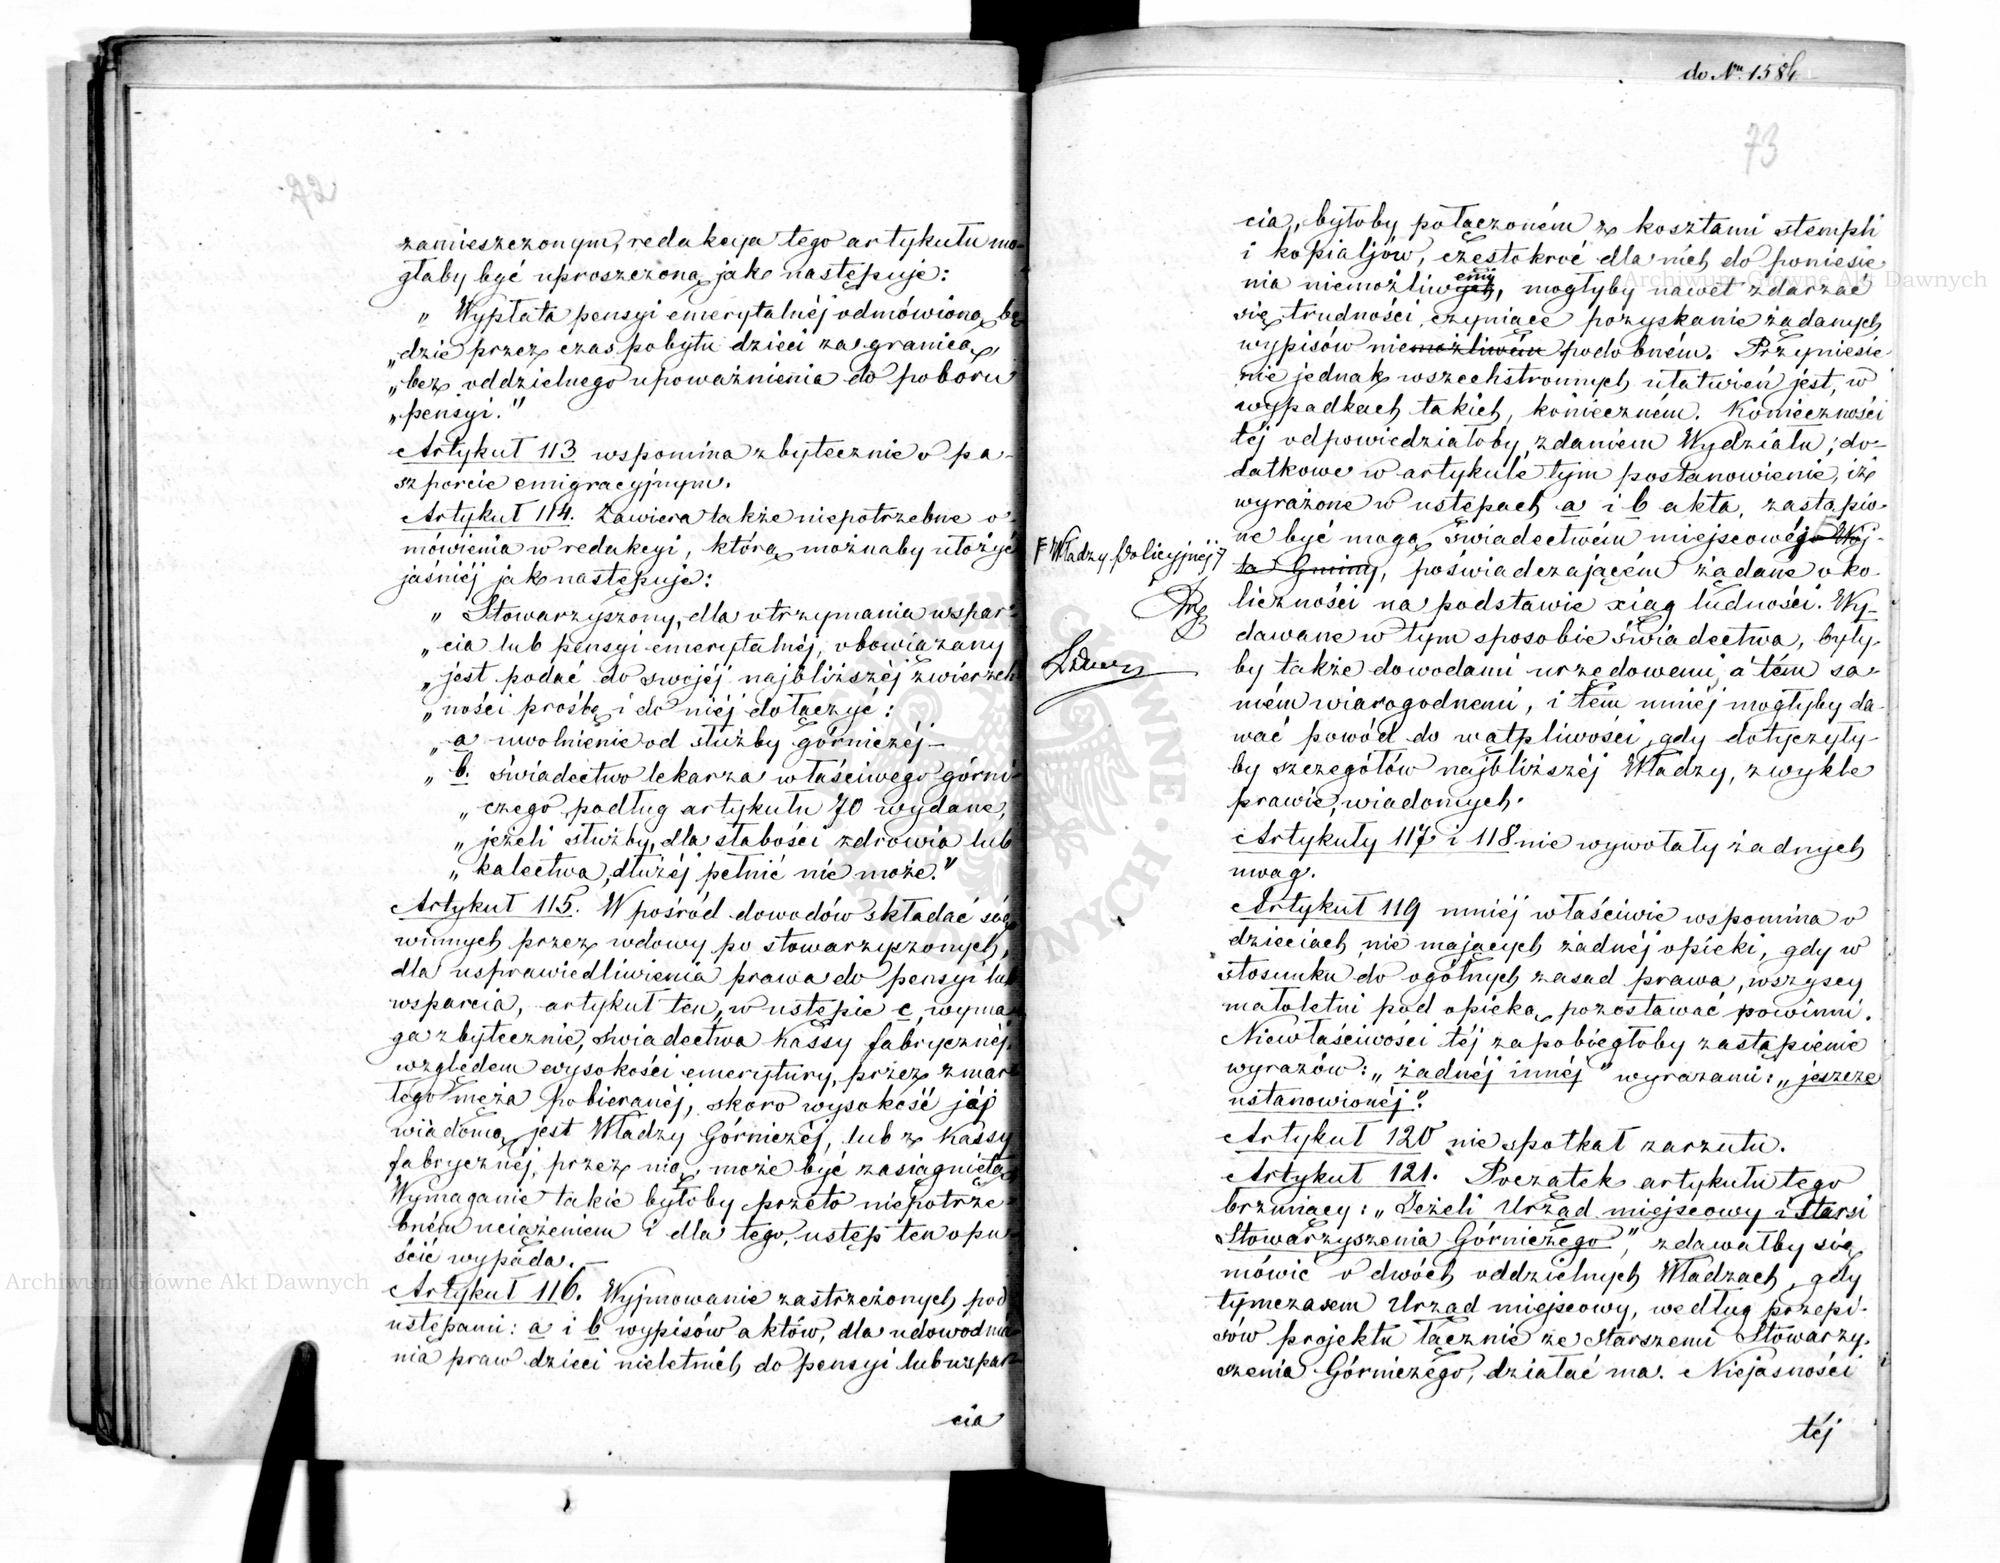 72
zamieszczonym, redakcya tego artykułu mo-
głaby być uproszczoną jak następuje:
„ Wypłata pensyi emerytalnéj odmówioną bę-
„dzie przez czas pobytu dzieci za granicą,
„bez oddzielnego upoważnienia do poboru
„pensyi."
Artykuł 113 wspomina zbytecznie o pa-
szporcie emigracyjnym.
Artykuł 114. Zawiera także niepotrzebne o-
mówienia w redakcyi, którą możnaby ułożyć
jaśniéj jak następuje:
„ Stowarzyszony, dla otrzymania wspar-
„cia lub pensyi emerytalnéj, obowiązany
„jest podać do swojéj najbliższéj zwierzch
„ności prośbę i do niéj dołączyć:
„ a uwolnienie od służby górniczéj –
„ b. świadectwo lekarza właściwego górni-
„ czego podług artykułu 70 wydane,
„ jeżeli służby, dla słabości zdrowia lub
„ kalectwa, dłużéj pełnić nie może."
Artykuł 115. W pośród dowodów składać się
winnych przez wdowy po stowarzyszonych,
dla usprawiedliwienia prawa do pensyi lub
wsparcia, artykuł ten, w ustępie c, wyma-
ga zbytecznie, świadectwa Kassy fabrycznéj
względem wysokości emerytury, przez zmar-
łego męża pobieranéj, skoro wysokość jéj
wiadomą jest Władzy Górniczéj, lub z Kassy
fabrycznéj, przez nią, może być zasiągnięta.
Wymaganie takie byłoby przeto niepotrze-
bném uciążeniem i dla tego, ustęp ten opu-
ścić wypada. –
Artykuł 116. Wyjmowanie zastrzeżonych pod
ustępami: a i b wypisów aktów, dla udowodnie-
nia praw dzieci nieletnich do pensyi lub wspar-
cia
do Nru 1584
73
cia, byłoby połączoném z kosztami stempli
i kopialjów, częstokroć dla nich do poniesie-
nia niemożliwych, mogłyby nawet zdarzać
emi
się trudności czyniące pozyskanie żądanych
wypisów niemożliwém podobném. Przyniesie-
nie jednak wszechstronnych ułatwień jest, w
wypadkach takich, konieczném. Konieczności
téj odpowiedziałoby, zdaniem Wydziału, do-
datkowe w artykule tym postanowienie, iż
wyrażone w ustępach a i b akta, zastąpio-
ne być mogą świadectwem miejscowégo Wój-
F Władzy Policyjnéj 7
ta Gminy, poświadczającém żądane oko-
liczności na podstawie xiąg ludności. Wy-
dawane w tym sposobie świadectwa, były-
by także dowodami urzędowemi, a tém sa-
mém wiarogodnemi, i tém mniéj mogłyby da-
wać powód do wątpliwości, gdy dotyczyły-
by szczegółów najbliższéj Władzy, zwykle
prawie, wiadomych.
Artykuły 117 i 118 nie wywołały żadnych
uwag.
Artykuł 119 mniéj właściwie wspomina o
dzieciach nie mających żadnéj opieki, gdy w
stosunku do ogólnych zasad prawa, wszyscy
małoletni pod opieką pozostawać powinni.
Niewłaściwości téj zapobiegłoby zastąpienie
wyrazów: „ żadnéj innéj " wyrazami: „ jeszcze
ustanowionéj".
Artykuł 120 nie spotkał zarzutu.
Artykuł 121. Początek artykułu tego
brzmiący: „ Jeżeli Urząd miejscowy i Starsi
Stowarzyszenia Górniczego", zdawałby się
mówić o dwóch oddzielnych Władzach, gdy
tymczasem Urząd miejscowy, według przepi-
sów projektu łącznie ze Starszemi Stowarzy-
szenia Górniczego, działać ma. Niejasności
téj
Archiwum Główne Akt Dawnych
Archiwum Główne Akt Dawnych